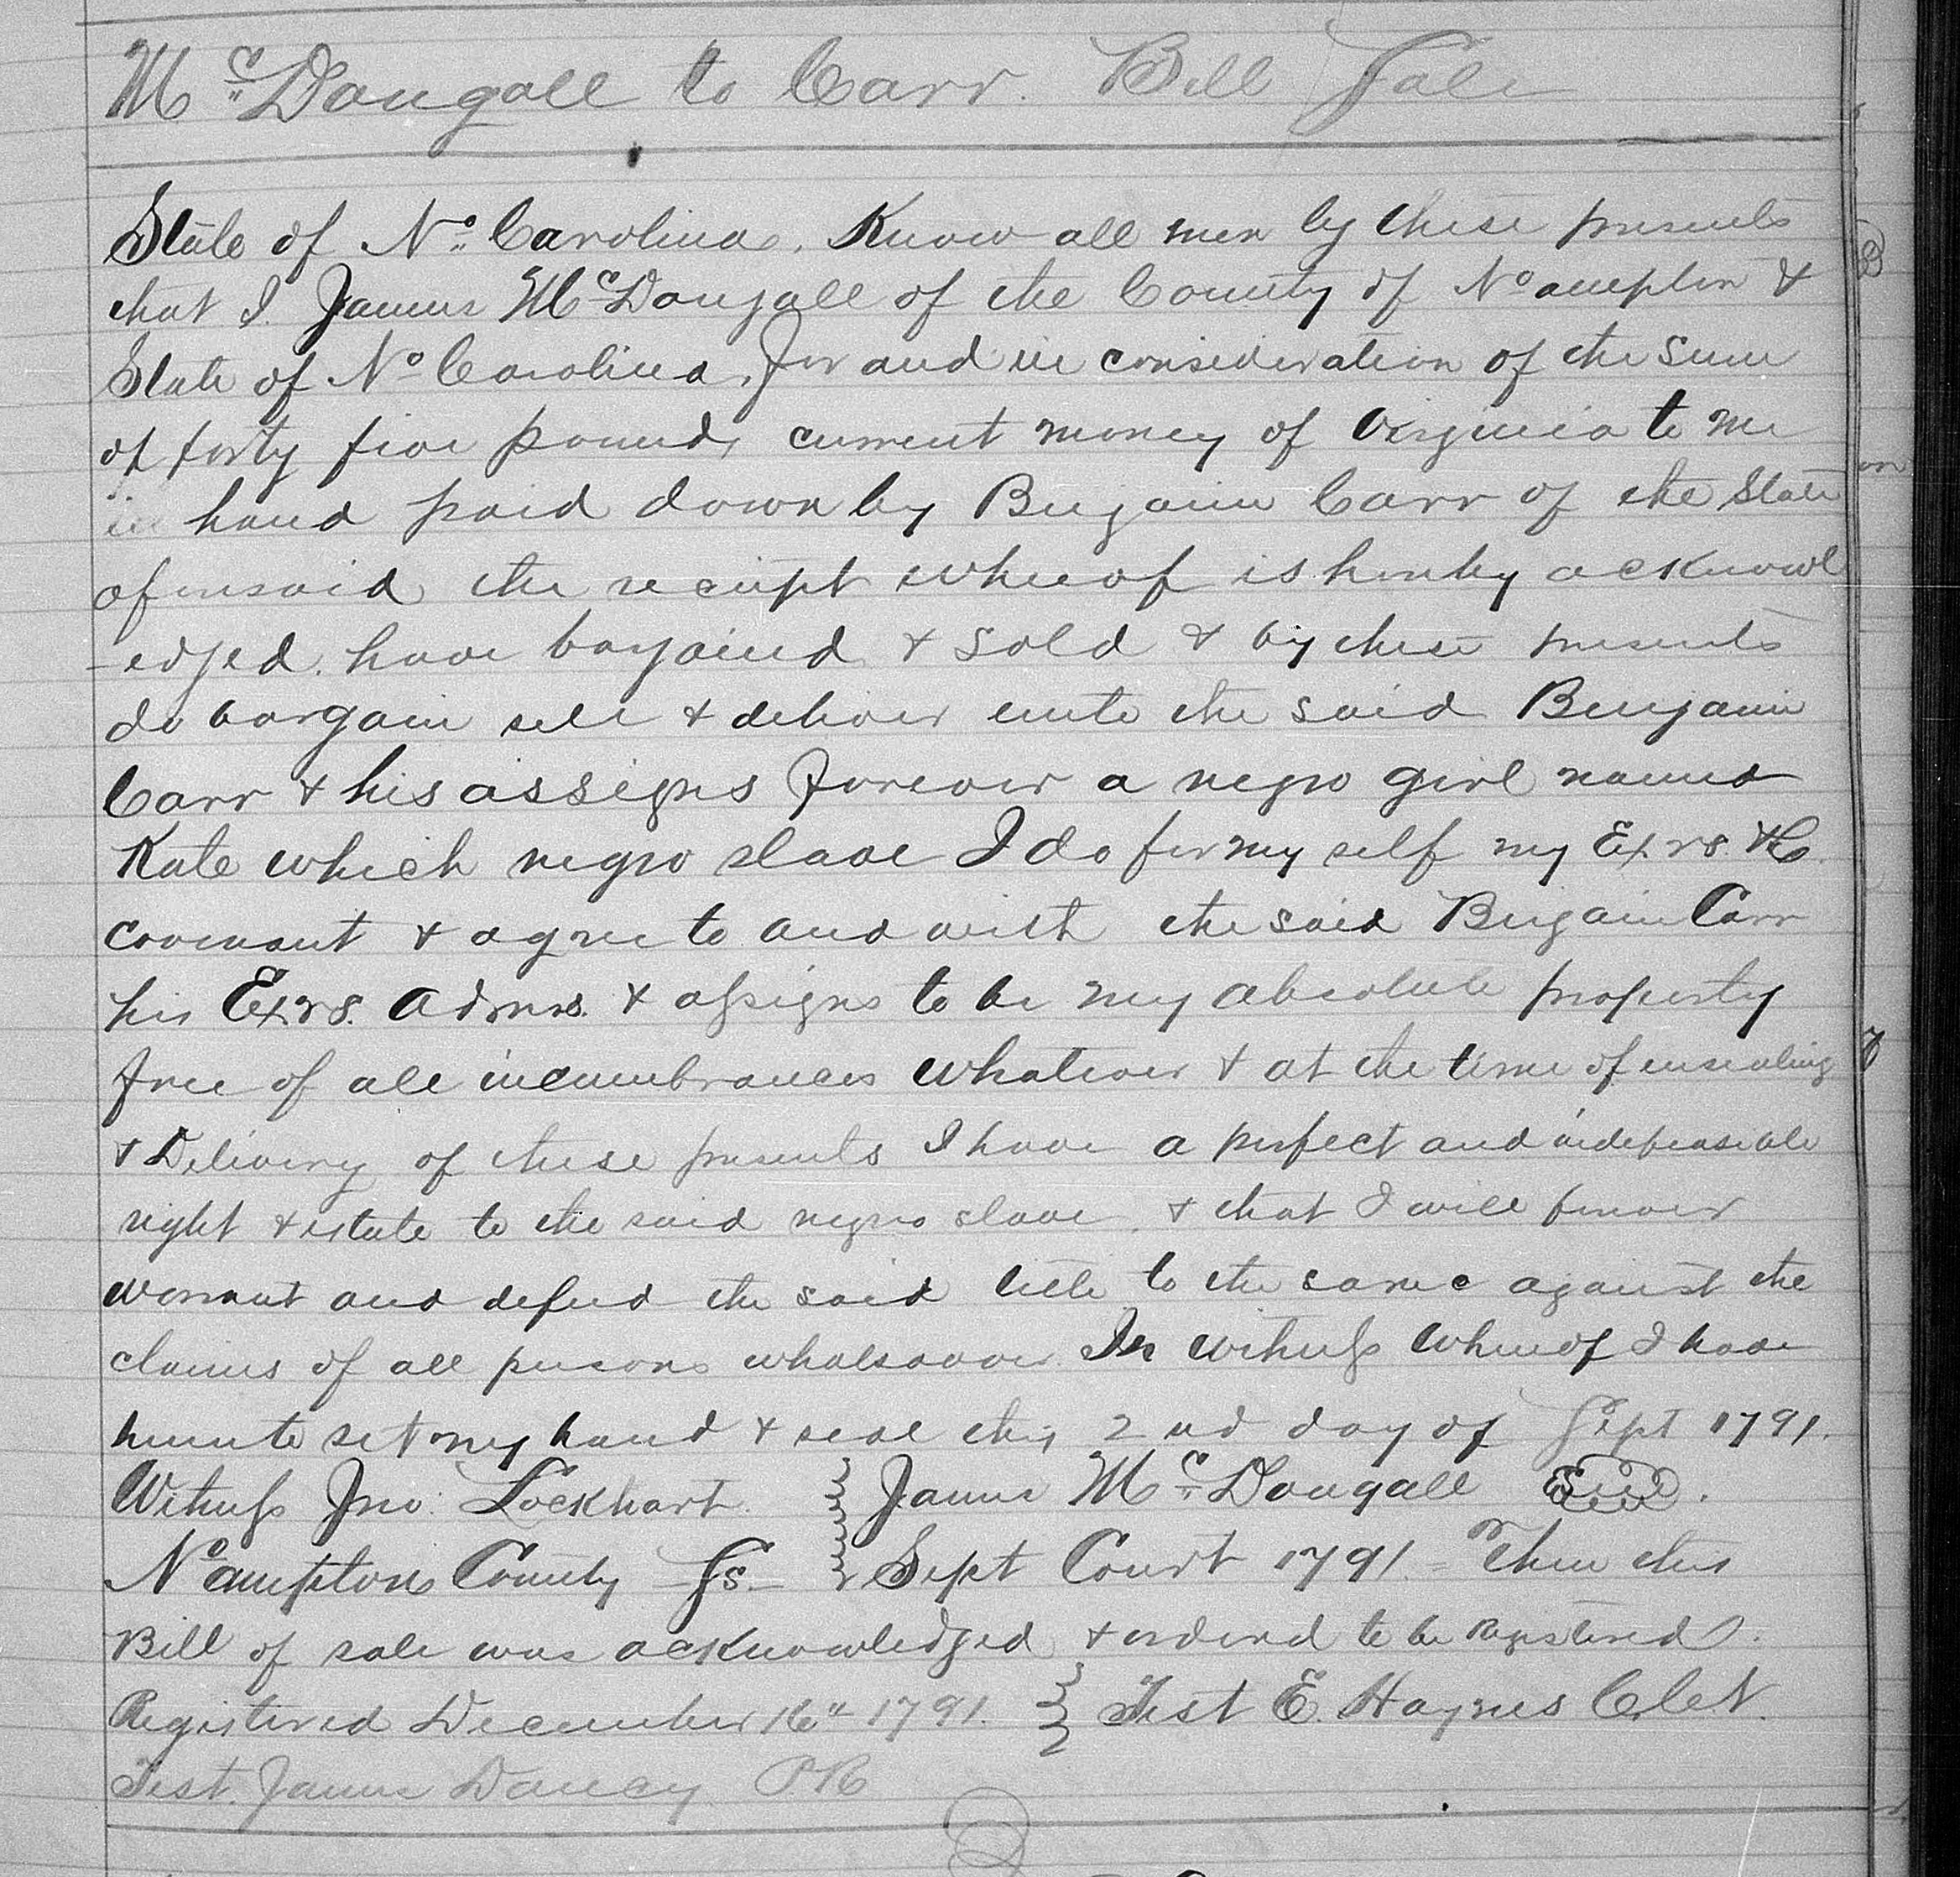 Mc Dougall to Carr. Bill Sale
State of No. Carolina. Know all men by these presents
that I. James McDougall of the County of Noampton &
State of No Carolina, for and in consideration of the sum
of forty five pounds current money of Virginia to me
in hand paid down by Benjamin Carr of the State
aforesaid the receipt whereof is hereby acknowl
-edged. have bargained & sold & by these presents
do bargain sell & deliver unto the said Benjamin
Carr & his assigns forever a negro girl named
Kate which negro slave I do for my self my Exrs. &c.
covenant & agree to and with the said Benjamin Carr
his Exrs. Admrs. & assigns to be my absolute property
free of all incumbrances whatever & at the time of ensealing
& Delivery of these presents I have a perfect and indefeasible
right & estate to the said negro slave. & that I will forever
warrant and defend the said title to the same against the
claims of all persons whatsoever. In witness whereof I have
hereunto set my hand & seal this 2nd day of Sept 1791.
Witness Jno. Lockhart. James Mc Dougall Seal.
Noampton County Ss. Sept Court 1791. Then this
Bill of sale was acknowledged & ordered to be Registered.
Registered December 16" 1791. Test E. Haynes Clek.
Test. James Dancy P.R